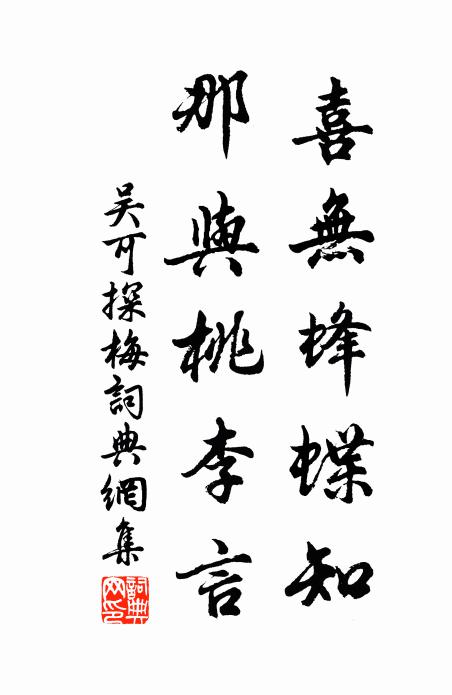 喜無蜂蝶知
那與桃李言
吳可探梅詞典網集
詞典網印